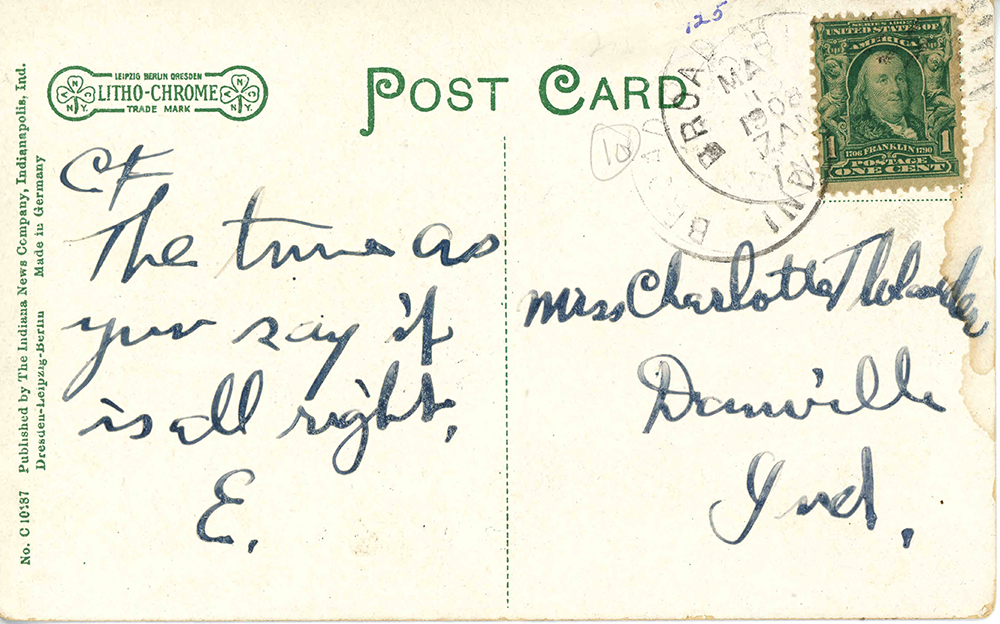 125
LEIPZIG BERLIN DRESDEN
LITHO-CHROME
TRADE MARK
N N Y.
N N Y.
POST CARD
BROAD
MAY
1
1908
7 AM
IND
SERIES 1902
UNITED STATES OF
AMERICA
1 1
1706 FRANKLIN 1790
POSTAGE
ONE CENT
10
The time as
you say it
is all right,
E.
Miss Charlotte
Danville
Ind,
No. C 10187 Published by The Indiana News Company, Indianapolis, Ind.
Dresden-Leipzig-Berlin Made in Germany